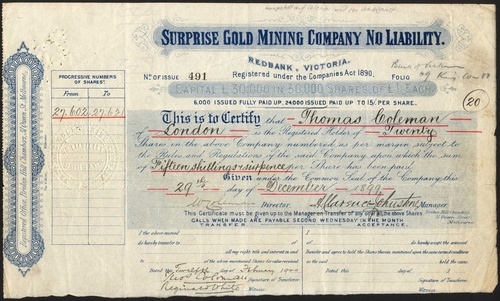 SURPRISE GOLD MINING COMPANY NO LIABILITY.
REDBANK, VICTORIA.
Registered under the Companies Act 1890.
No OF ISSUE 491
FOLIO
CAPITAL £30,000 IN 30,000 SHARES OF £1 EACH
6,000 ISSUED FULLY PAID UP, 24,000 ISSUED PAID UP TO 15/ PER SHARE.
PROGRESSIVE NUMBERS OF SHARES.
From To
27,602 27,621
20
This is to Certify that Thomas Coleman
London is the Registered Holder of Twenty
Shares in the above Company numbered as per margin subject to
the Rules and Regulations of the said Company upon which the sum
of Fifteen shillings & sixpence per Share has been paid.
Given under the Common Seal of the Company this
29th day of December 1899
Director. Manager.
This Certificate must be given up to the Manager on Transfer of any or all the above Shares
CALLS WHEN MADE ARE PAYABLE SECOND WEDNESDAY IN THE MONTH
TRANSFER. ACCEPTANCE.
I the above named
do hereby transfer to
all my right title and interest in and
to the above mentioned Shares for value received
Dated the Twelfth day of February 1900
Thos Coleman Signature of Transferor
Reginald White Witness
I
do hereby accept the above Transfer and agree to hold the Shares therein mentioned upon the same terms and conditions
as the same were held
Dated
Signature of Transferee
Witness
Registered Office,